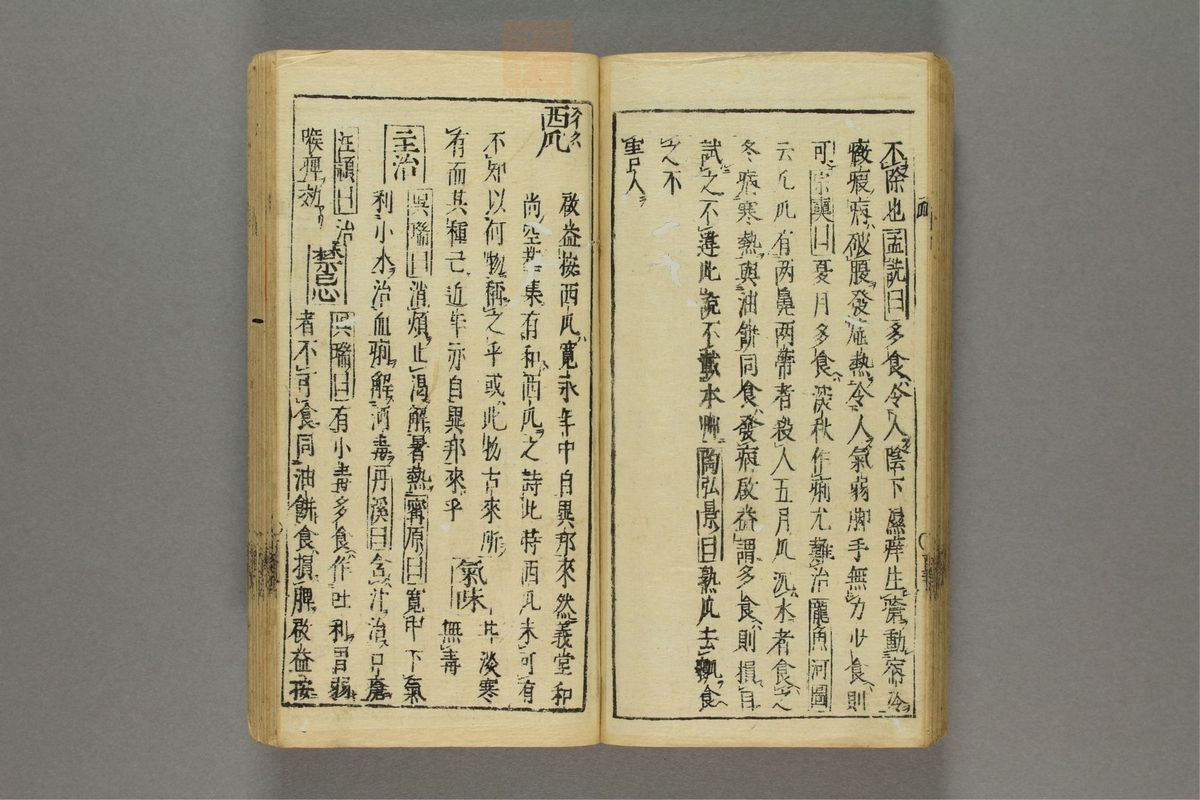 不際也孟詵曰多食令人陰下濕痒生瘡動宿冷
癥瘕病破腹發虛熱令人氣弱脚手無力少食則
可宗奭曰夏月多食深秋作痢尤難治龍魚河圖
云凡瓜有両鼻両蒂者殺人五月瓜沉水者食之
冬病寒熱與油餅同食發病啟益謂多食則損自
試之不違此說不載本艸陶弘景曰熟瓜去瓤食
之不
害人
西瓜
啟益按西瓜寛永年中自異邦來然義堂和
尚空華集有和西瓜之詩此時西瓜未可有
不知以何物稱之乎或此物古來所
有而其種已近年亦自異邦來乎
氣味 甘淡寒
無毒
主治 吳瑞曰消煩止渴解暑熱甯原曰寛中下氣
利小水治血痢解酒毒丹溪曰含汁治口瘡
汪頴曰治
喉痺効
禁忌 吳瑞曰有小毒多食作吐利胃弱
者不可食同油餅食損脾啟益按